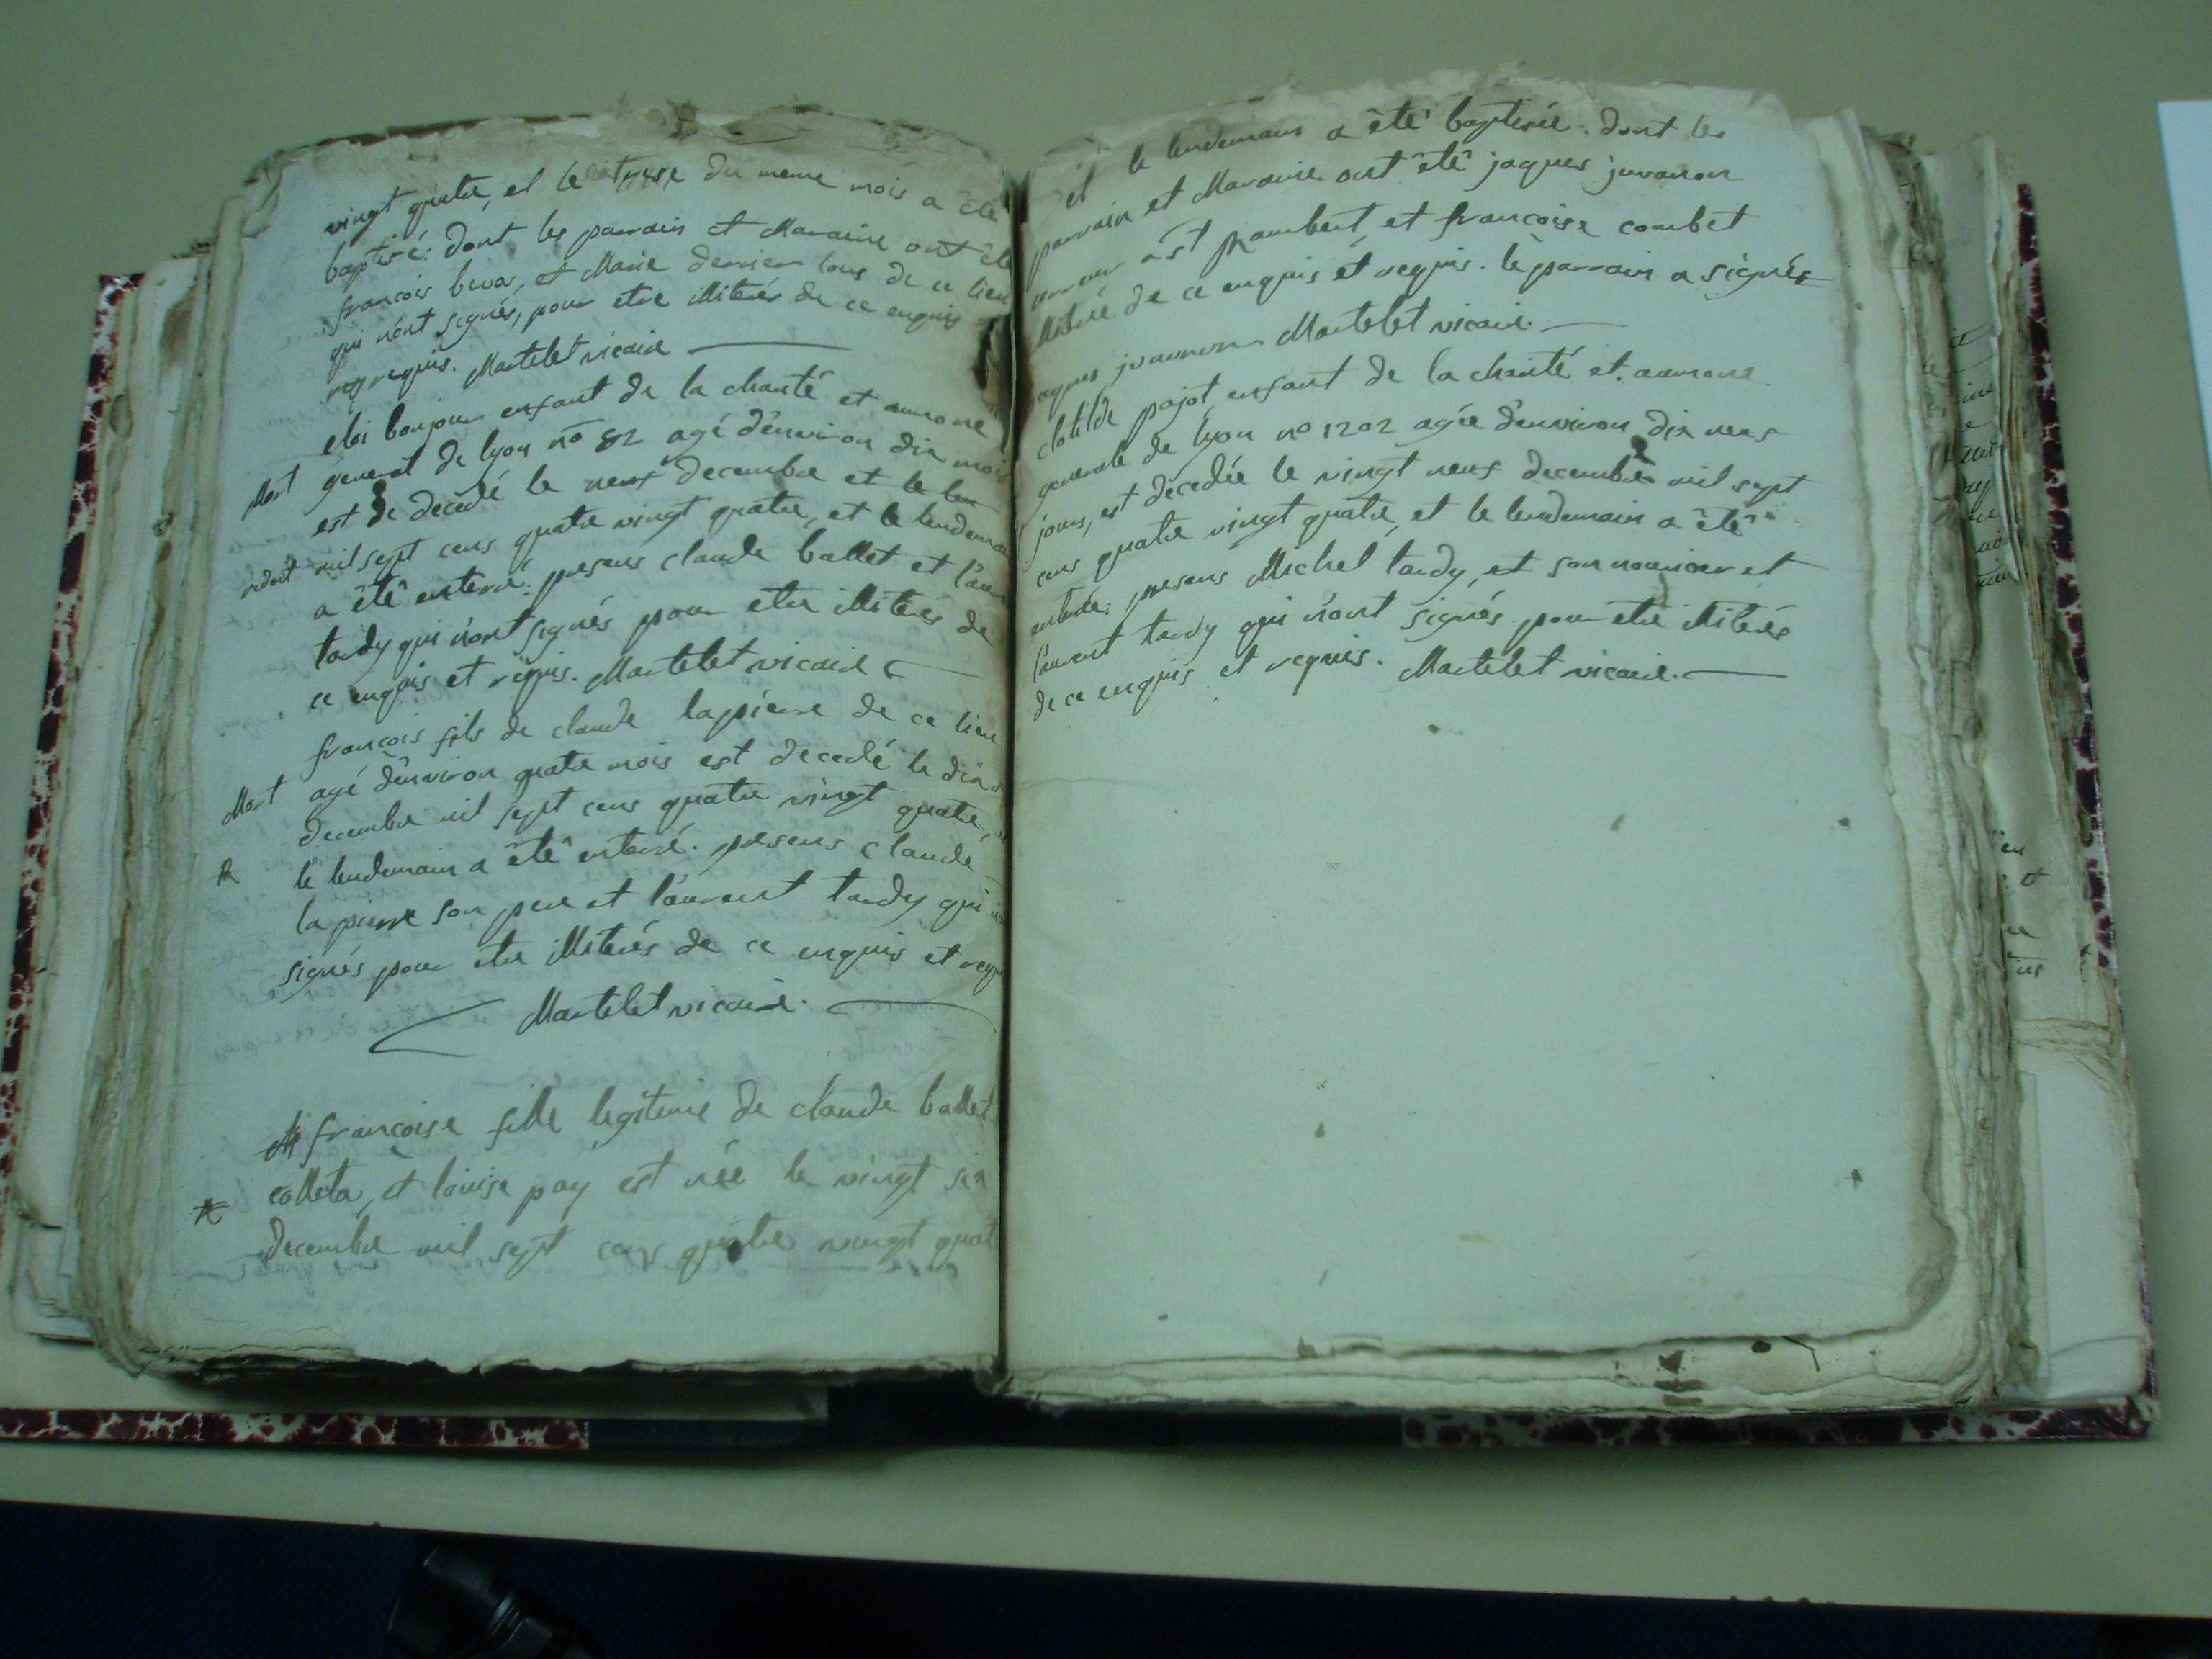 vingt quatre, et le treize du meme mois a été
baptisé: dont les parrain et Maraine ont été
francois , et Marie derrier tous de ce lieu
qui n'ont signés, pour etre illiterés de ce enquis
requis. Martelet vicaire
eloi bonjour enfant de la charité et aumone
Mort general de lyon no 82 agé d'environ dix mois
est de decedé le neuf decembre et le
mil sept cens quatre vingt quatre, et le lendemain
a été enterré: presens claude ballet et
tardy qui n'ont signés pour etre illiterés de
ce enquis et requis. Martelet vicaire
francois fils de claude lapierre de ce lieu
Mort agé d'environ quatre mois est decedé le dix
decembre mil sept cens quatre vingt quatre,
R le lendemain a été enterré. presens claude
la pierre son pere et laurent tardy qui
signés pour etre illiterés de ce enquis et
Martelet vicaire.
françoise fille legitime de claude ballet
colleta, et louise pay est née le vingt six
decembre mil sept cens quatre vingt
et le lendemain a été baptisée. dont les
parrain et Maraine ont été jaques juvanon
st Rambert, et françoise combet
de ce enquis et requis. le parrain a signés
juvanon. Martelet vicaire.
clotilde pajot enfant de la charité et aumone
generale de lyon no 1202 agée d'environ dix neuf
jours, est decedée le vingt neuf decembre mil sept
cens quatre vingt quatre, et le lendemain a été
enterrée: presens Michel tardy, et son nourricier et
laurent tardy qui n'ont signés pour etre illiterés
de ce enquis et requis. Martelet vicaire.